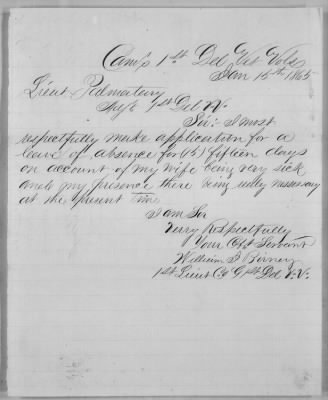 Camp 1st Del Vet Vols
Jan 15th 1865
Lieut Palmatary
Adjt 1st Del V.
Sir: I most
respectfully make application for a
leave of absence for (15) fifteen days
on account of my wife being very sick
and my presence there being very necessary
at the present time
I am Sir
Very Respectfully
Your Obt Servant
William J Birney
1st Lieut Co G 1st Del V.V.